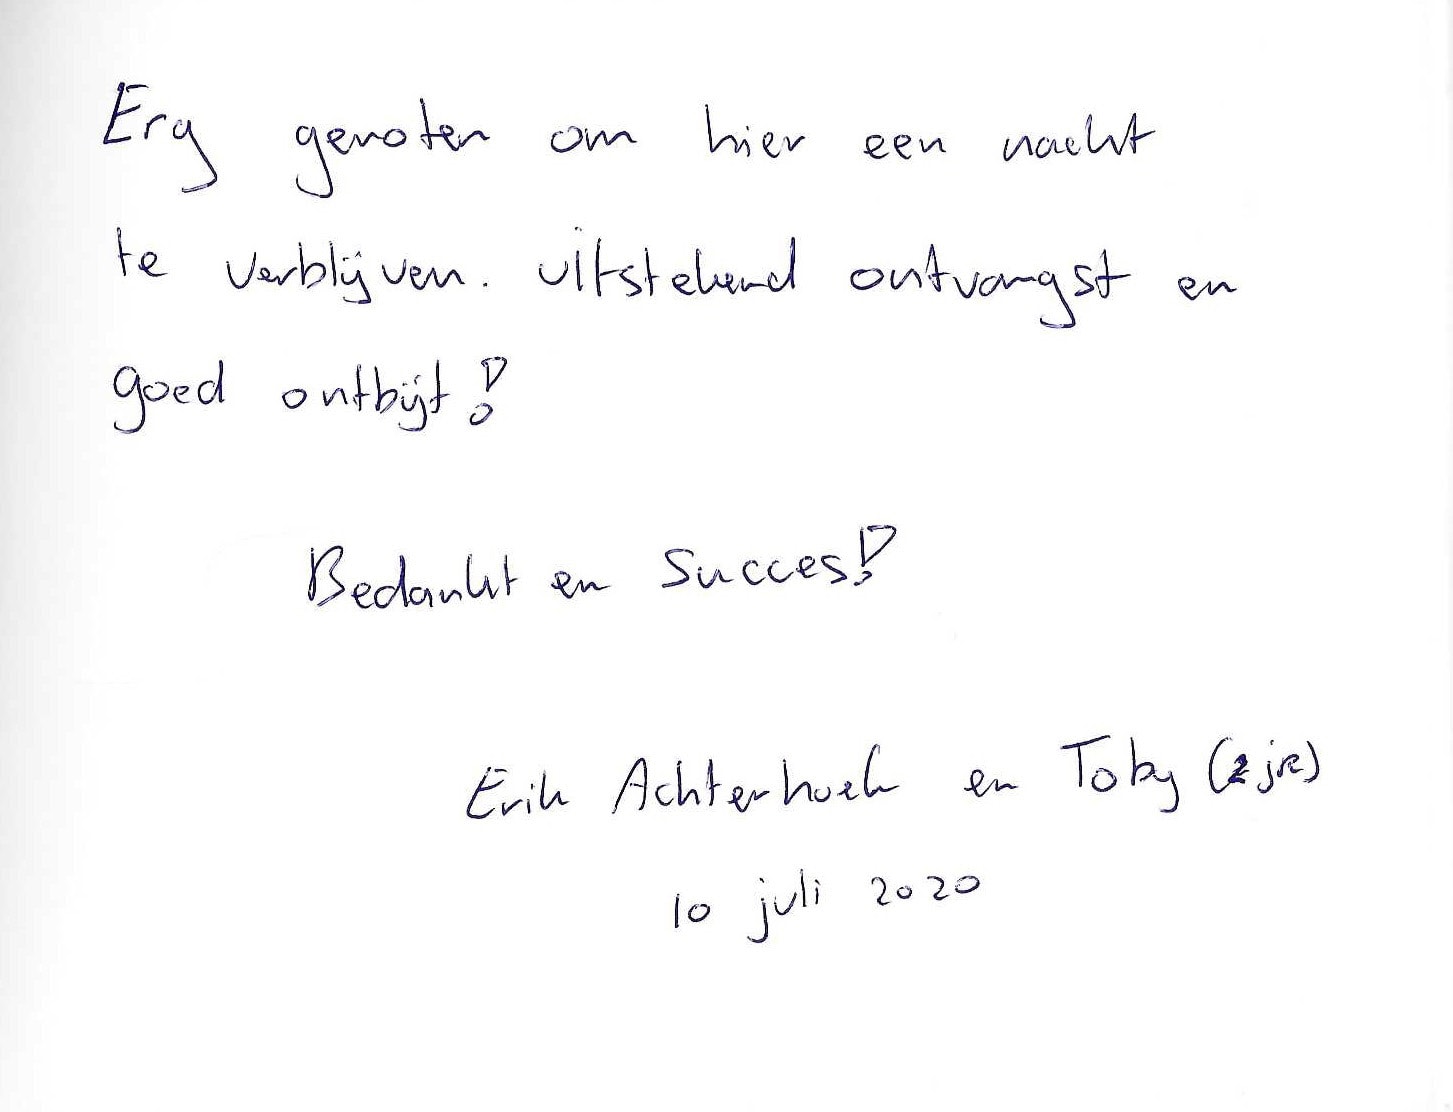 Erg genoten om hier een nacht
te verblijven. uitstekend ontvangst en
goed ontbijt!
Bedankt en Succes!
Erik Achterhoek en Toby (2 jr)
10 juli 2020